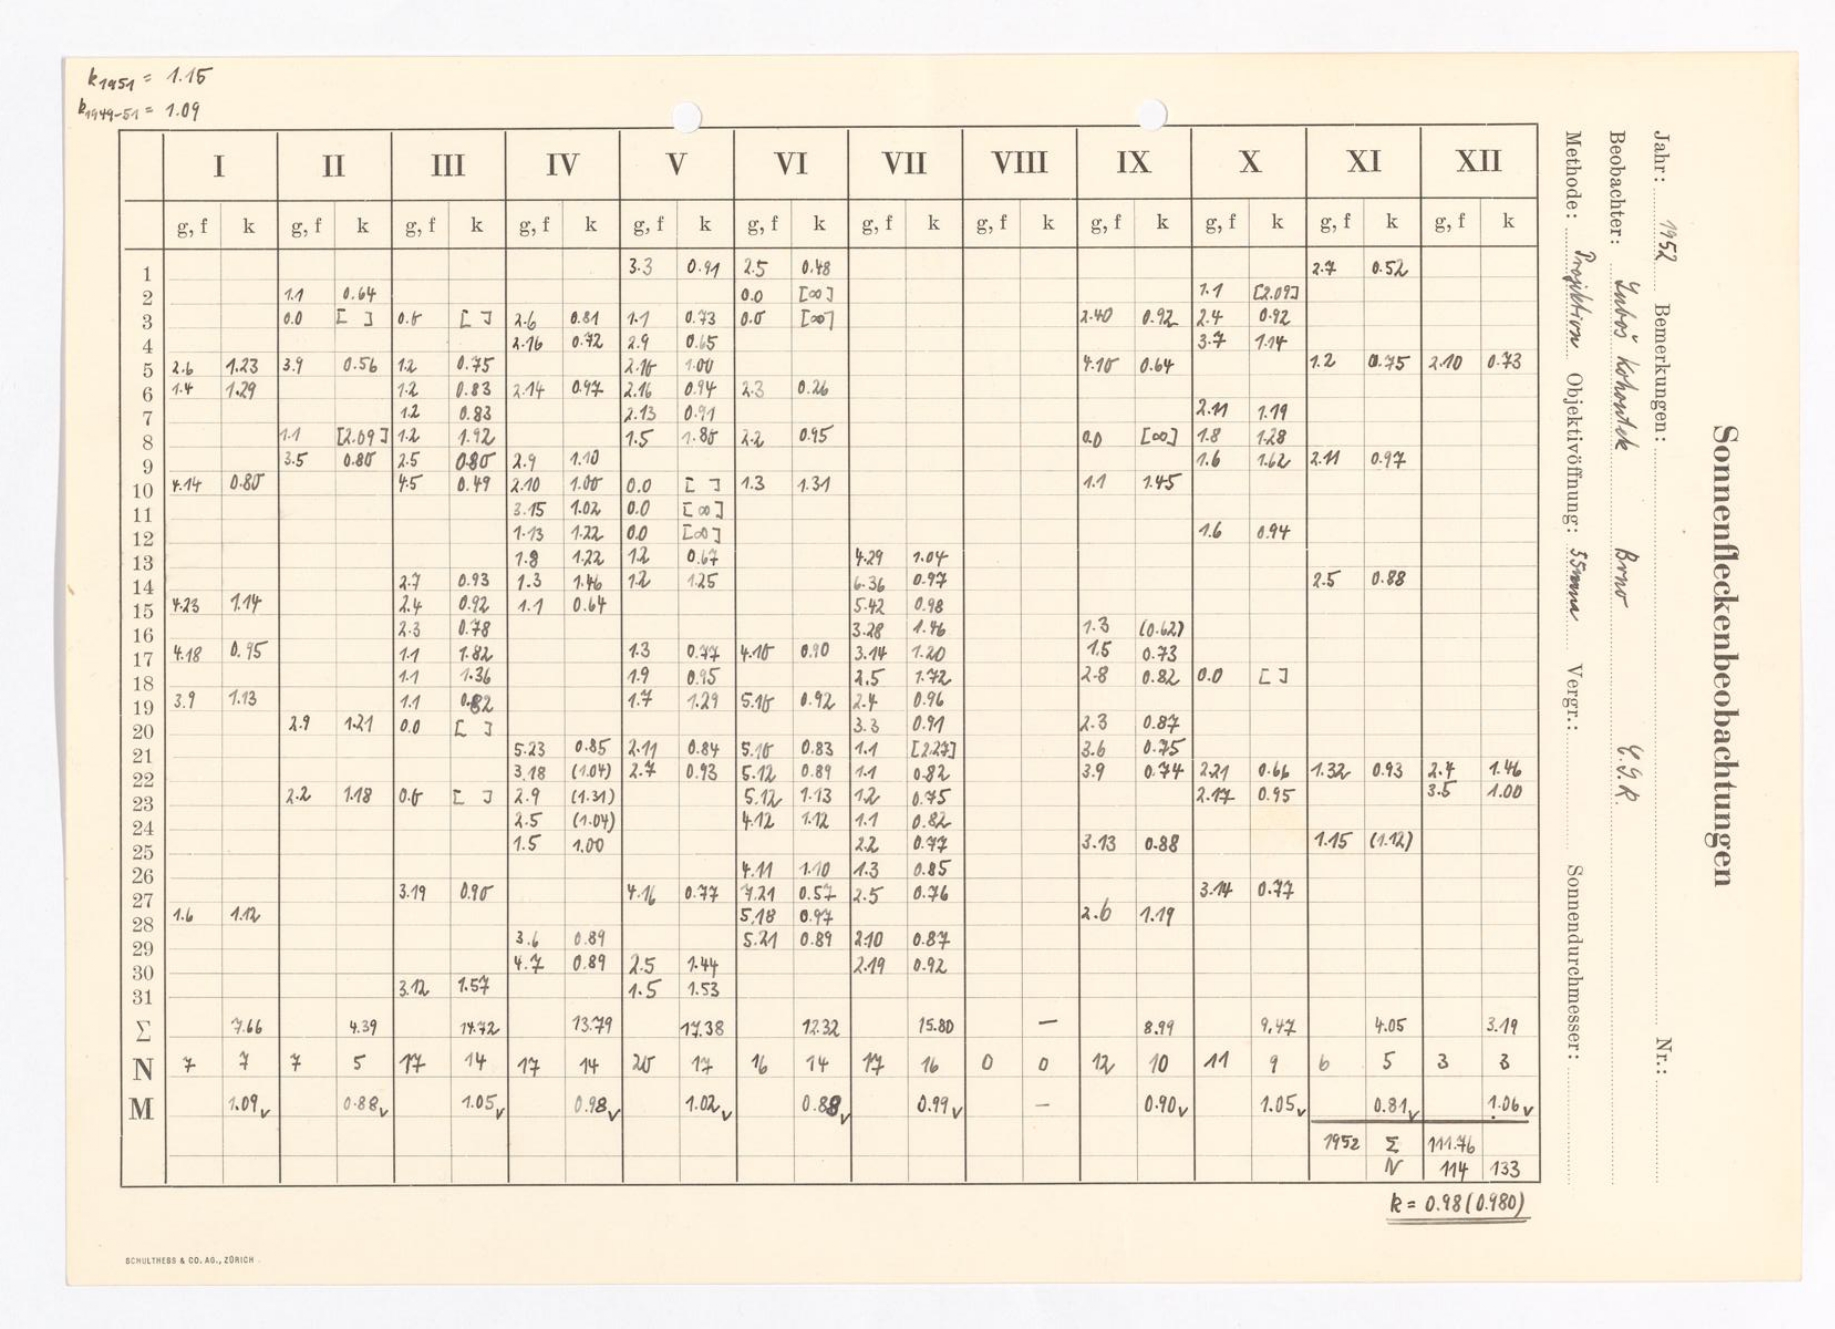 k1951 = 1.15
k1949-51 = 1.09
Sonnenfleckenbeobachtungen
Jahr: 1952 Bemerkungen: Nr.:
Beobachter: Luboš Kohoutek Brno Č.S.R.
Methode: Projektion Objektivöffnung: 55mm Vergr.: Sonnendurchmesser:
I II III IV V VI VII VIII IX X XI XII
g, f k g, f k g, f k g, f k g, f k g, f k g, f k g, f k g, f k g, f k g, f k g, f k
1 3.3 0.91 2.5 0.48 2.7 0.52
2 1.1 0.64 0.0 [∞] 1.1 [2.09]
3 0.0 [ ] 0.0 [ ] 2.6 0.81 1.1 0.73 0.0 [∞] 2.40 0.92 2.4 0.92
4 2.16 0.72 2.9 0.65 3.7 1.14
5 2.6 1.23 3.9 0.56 1.2 0.75 2.10 1.00 4.10 0.64 1.2 0.75 2.10 0.73
6 1.4 1.29 1.2 0.83 2.14 0.97 2.16 0.94 2.3 0.26
7 1.2 0.83 2.13 0.91 2.11 1.19
8 1.1 [2.09] 1.2 1.92 1.5 1.80 2.2 0.95 0.0 [∞] 1.8 1.28
9 3.5 0.80 2.5 0.80 2.9 1.10 1.6 1.62 2.11 0.97
10 4.14 0.80 4.5 0.49 2.10 1.00 0.0 [ ] 1.3 1.31 1.1 1.45
11 3.15 1.02 0.0 [∞]
12 1.13 1.22 0.0 [∞] 1.6 0.94
13 1.8 1.22 1.2 0.67 4.29 1.04
14 2.7 0.93 1.3 1.46 1.2 1.25 6.36 0.97 2.5 0.88
15 4.23 1.14 2.4 0.92 1.1 0.64 5.42 0.98
16 2.3 0.78 3.28 1.46 1.3 (0.62)
17 4.18 0.95 1.1 1.82 1.3 0.77 4.10 0.90 3.14 1.20 1.5 0.73
18 1.1 1.36 1.9 0.95 2.5 1.72 2.8 0.82 0.0 [ ]
19 3.9 1.13 1.1 0.82 1.7 1.29 5.10 0.92 2.4 0.96
20 2.9 1.21 0.0 [ ] 3.3 0.91 2.3 0.87
21 5.23 0.85 2.11 0.84 5.10 0.83 1.1 [2.27] 3.6 0.75
22 3.18 (1.04) 2.7 0.93 5.12 0.89 1.1 0.82 3.9 0.74 2.21 0.66 1.32 0.93 2.4 1.46
23 2.2 1.18 0.0 [ ] 2.9 (1.31) 5.12 1.13 1.2 0.75 2.17 0.95 3.5 1.00
24 2.5 (1.04) 4.12 1.12 1.1 0.82
25 1.5 1.00 2.2 0.77 3.13 0.88 1.15 (1.12)
26 4.11 1.10 1.3 0.85
27 3.19 0.90 4.16 0.77 7.21 0.57 2.5 0.76 3.14 0.77
28 1.6 1.12 5.18 0.97 2.6 1.19
29 3.6 0.89 5.21 0.89 2.10 0.87
30 4.7 0.89 2.5 1.44 2.19 0.92
31 3.12 1.57 1.5 1.53
Σ 7.66 4.39 14.72 13.79 17.38 12.32 15.80 — 8.99 9.47 4.05 3.19
N 7 7 7 5 17 14 17 14 20 17 16 14 17 16 0 0 12 10 11 9 6 5 3 3
M 1.09v 0.88v 1.05v 0.98v 1.02v 0.88v 0.99v — 0.90v 1.05v 0.81v 1.06v
1952 Σ 111.76
N 114 133
k = 0.98 (0.980)
SCHULTHESS & CO. AG., ZÜRICH